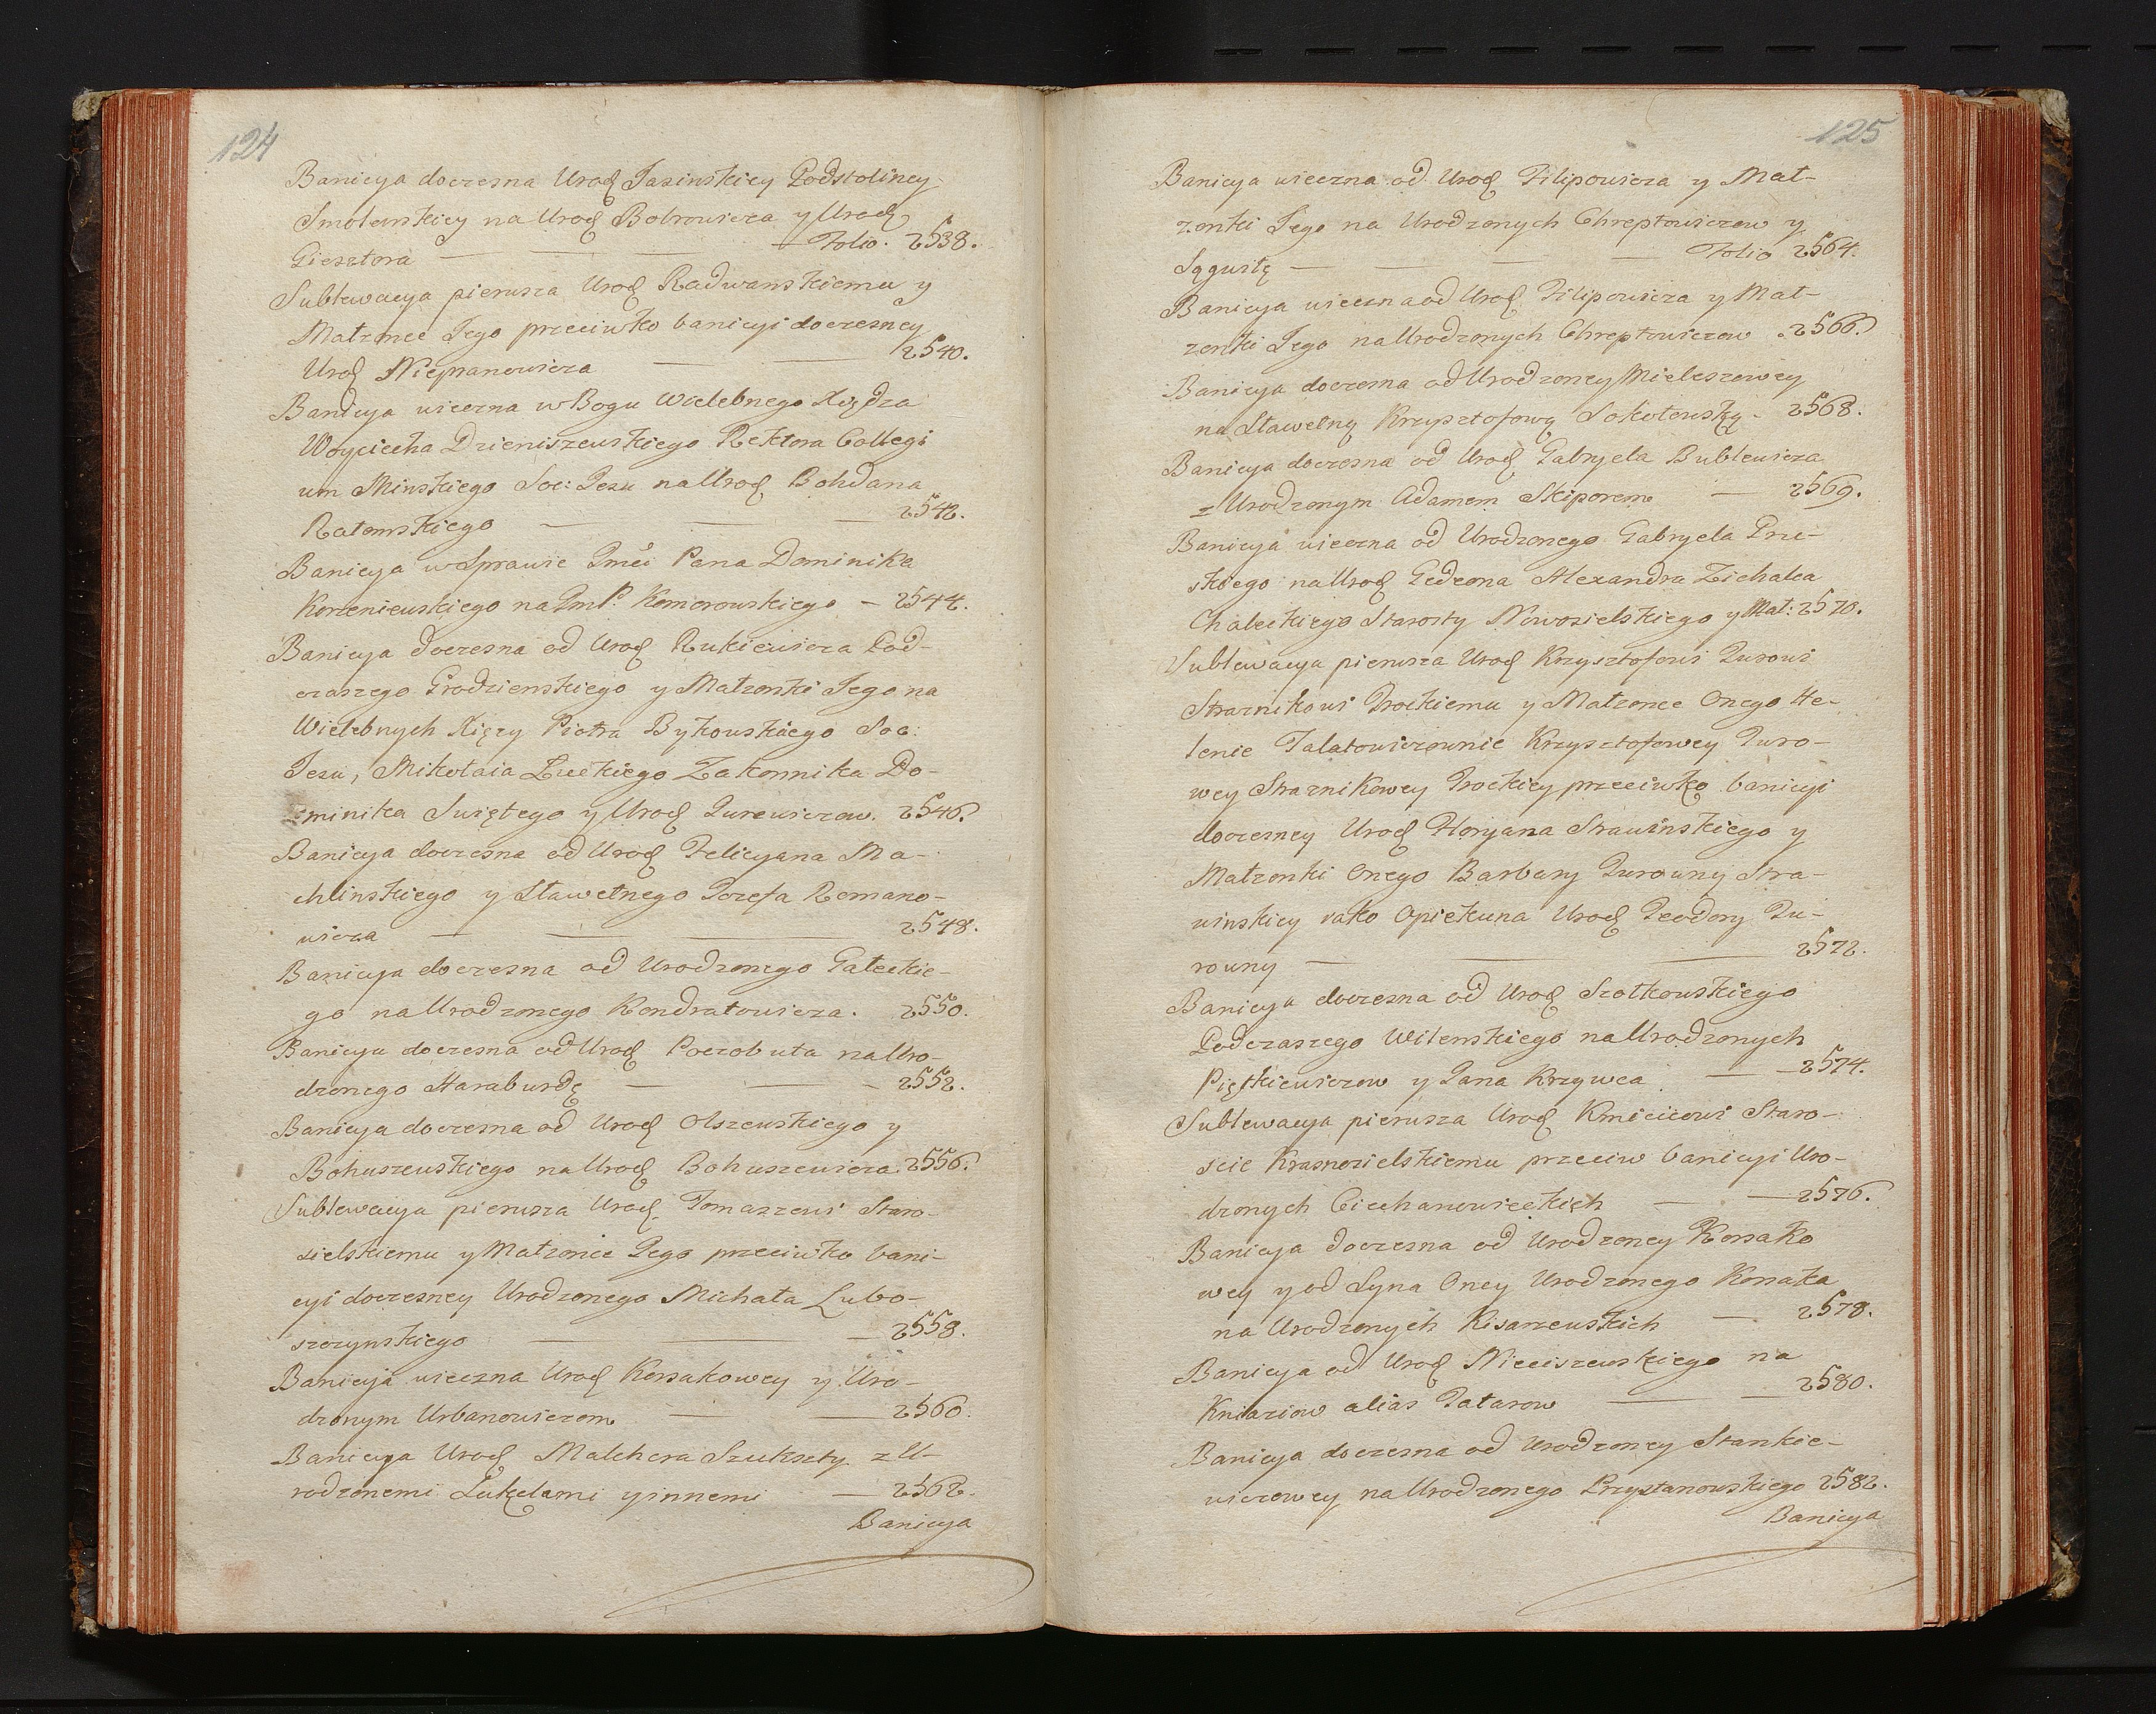 124
Banicya doczesna Urod Jasinskiey Podstoliney
Smolenskiey na Urod Bobrowicza y Urod
Giesztora — Folio. 2538.
Sublewacya pierwsza Urod Radwanskiemu y
Małzonce Jego przeciwko banicyi doczesney
Urod Niepranowicza — 2540.
Banicya wieczna w Bogu Wielebnego Xiędza
Woyciecha Dzieniszewskiego Rektora Collegi
um Minskiego Soc: Jesu na Urod Bohdana
Ratomskiego — 2542.
Banicya w Sprawie Jmći Pana Dominika
Korzeniewskiego na JmP. Komorowskiego — 2544.
Banicya doczesna od Urod Rukiewicza Pod-
czaszego Grodzienskiego y Małzonki Jego na
Wielebnych Xięzy Piotra Bykowskiego Soc:
Jesu, Mikołaia Łuckiego Zakonnika Do-
minika Swiętego y Urod Jurewiczow. 2546.
Banicya doczesna od Urod Felicyana Ma-
chlinskiego y Sławetnego Jozefa Romano-
wicza — 2548.
Banicya doczesna od Urodzonego Gałeckie-
go na Urodzonego Kondratowicza. 2550.
Banicya doczesna od Urod Poczobuta na Uro-
dzonego Haraburdę — 2552.
Banicya doczesna od Urod Olszewskiego y
Bohuszewskiego na Urod Bohuszewicza. 2556.
Sublewacya pierwsza Urod Tomaszewi Staro-
sielskiemu y Małzonce Jego przeciwko bani-
cyi doczesney Urodzonego Michała Lubo-
szczynskiego — 2558.
Banicya wieczna Urod Korsakowey y Uro-
dzonym Urbanowiczom — 2560.
Banicya Urod Malchera Szukszty z U-
rodzonemi Lukelami y innemi — 2562.
Banicya
125
Banicya wieczna od Urod Filipowicza y Mał-
zonki Jego na Urodzonych Chreptowiczow y
Sągustę — Folio 2564.
Banicya wieczna od Urod Filipowicza y Mał-
zonki Jego na Urodzonych Chreptowiczow. 2566.
Banicya doczesna od Urodzoney Mieleszowey
na Sławetną Krzysztofową Sokołowską. 2568.
Banicya doczesna od Urod Gabryela Bublewicza
z Urodzonym Adamem Skiporem — 2569.
Banicya wieczna od Urodzonego Gabryela Pru-
skiego na Urod Gedeona Alexandra Zichalca
Chaleckiego Starosty Nowosielskiego y Mał: 2570.
Sublewacya pierwsza Urod Krzysztofowi Turowi
Straznikowi Trockiemu y Małzonce Onego He-
lenie Talatowiczownie Krzysztofowey Turo-
wey Straznikowey Trockiey przeciwko banicyi
doczesney Urod Floryana Strawinskiego y
Małzonki Onego Barbary Turowny Stra-
winskiey iako Opiekuna Urod Teodory Tu-
rowny — 2572.
Banicya doczesna od Urod Szotkowskiego
Podczaszego Wilenskiego na Urodzonych
Piętkiewiczow y Pana Krzywca — 2574.
Sublewacya pierwsza Urod Kmicicowi Staro-
scie Krasnosielskiemu przeciw banicyi Uro-
dzonych Ciechanowieckich — 2576.
Banicya doczesna od Urodzoney Korsako
wey y od Syna Oney Urodzonego Korsaka
na Urodzonych Kisarzewskich — 2578.
Banicya od Urod Nieciszewskiego na
Kniaziow alias Tatarow — 2580.
Banicya doczesna od Urodzoney Stankie-
wiczowey na Urodzonego Przystanowskiego 2582.
Banicya